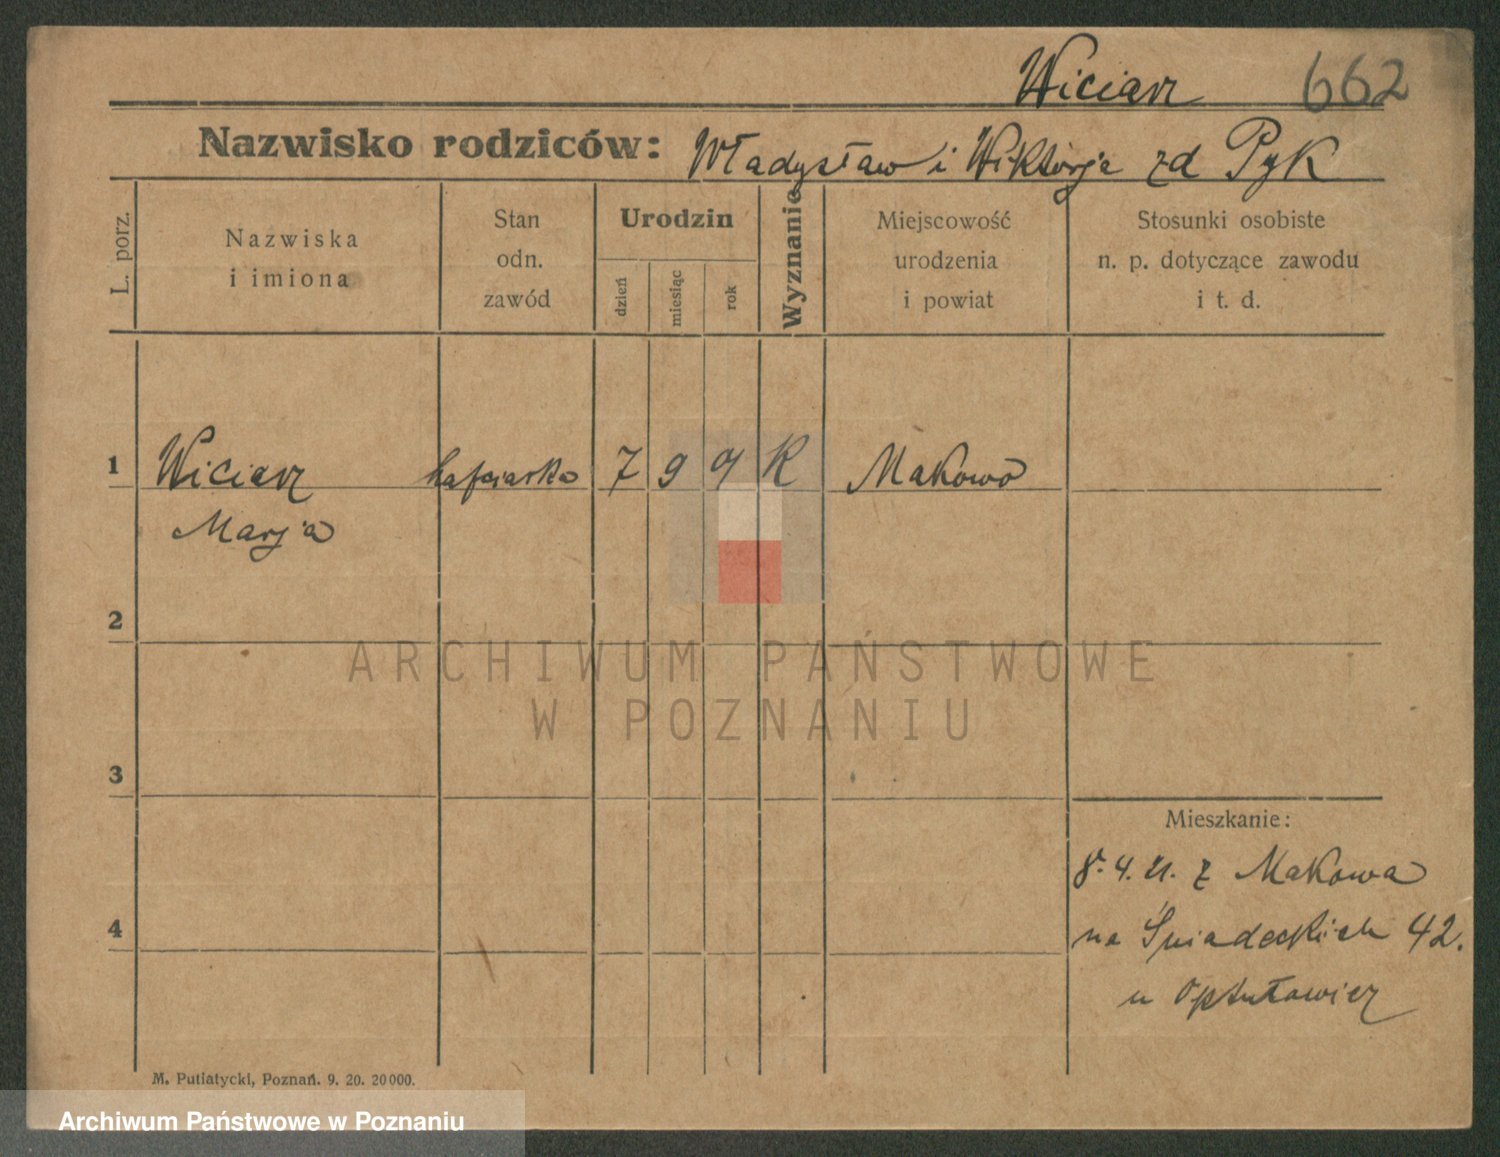 Wiciarz 662
Nazwisko rodziców: Władysław i Wiktorja zd Pyk
L. porz.
Nazwiska
i imiona
Stan
odn.
zawód
Urodzin
dzień
miesiąc
rok
Wyznanie
Miejscowość
urodzenia
i powiat
Stosunki osobiste
n. p. dotyczące zawodu
i t. d.
1 Wiciarz hafciarka 7 9 9 K Makowo
Marja
2
3
4
Mieszkanie:
8. 4. 21. z Makowa
na Śniadeckich 42.
u
M. Putiatycki, Poznań. 9. 20. 20000.
ARCHIWUM PAŃSTWOWE
W POZNANIU
Archiwum Państwowe w Poznaniu